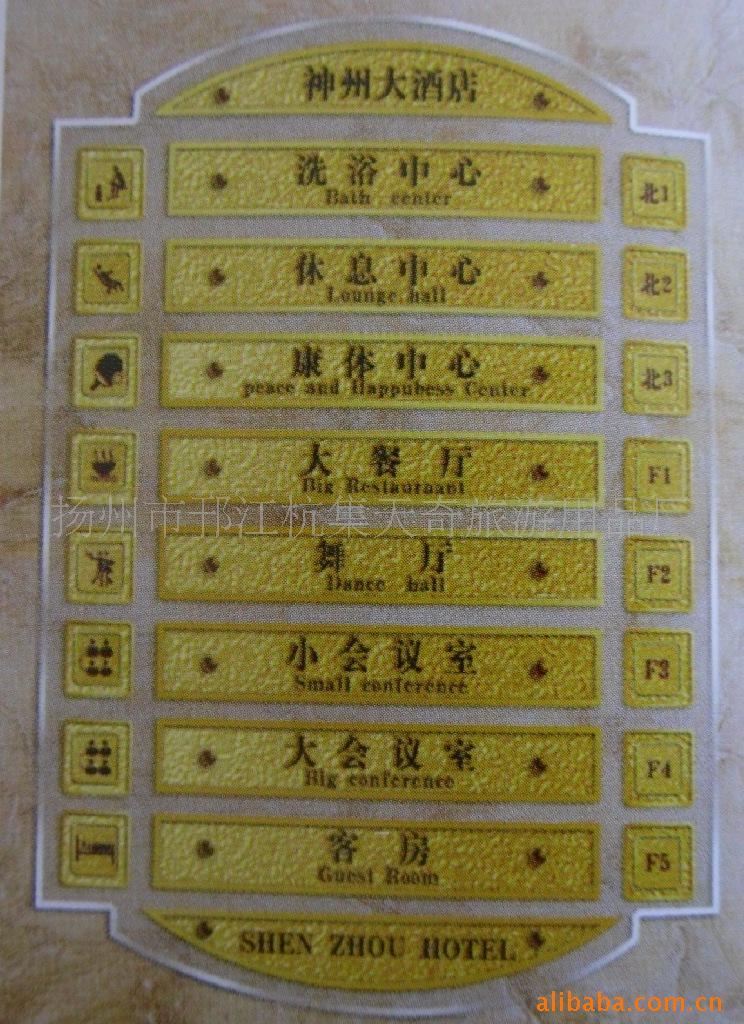 神州大酒店
洗浴中心 北1
Bath center
休息中心 北2
Lounge hall
康体中心 北3
peace and Happubess Center
大餐厅 F1
Big Restaurnant
扬州市邗江杭集天奇旅游用品厂
舞厅 F2
Dance hall
小会议室 F3
Small conference
大会议室 F4
Big conference
客房 F5
Guest Room
SHEN ZHOU HOTEL
alibaba.com.cn